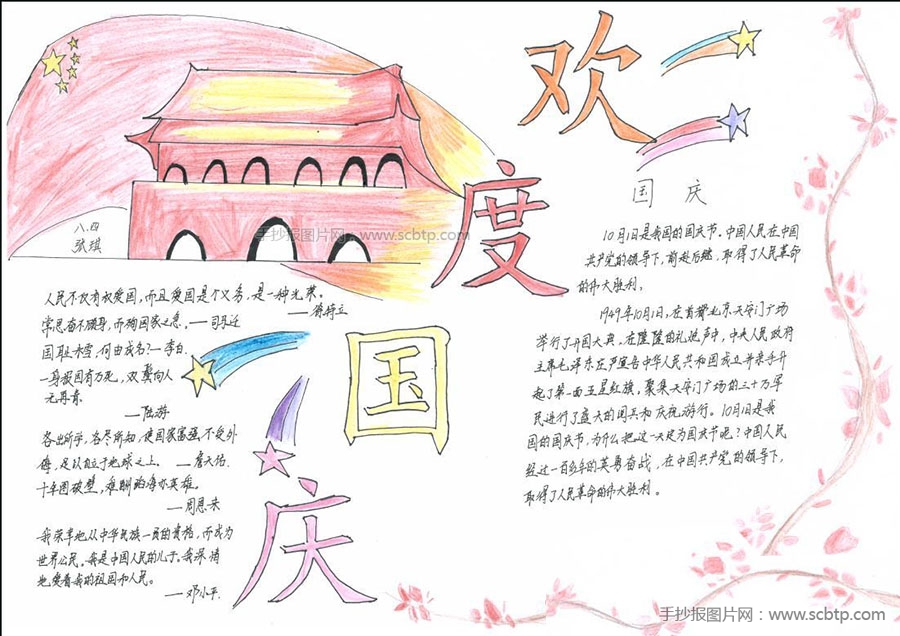 欢度国庆
八.四
张琪
手抄报图片网:www.scbtp.com
人民不仅有权爱国,而且爱国是个义务,是一种光荣。
——徐特立
常思奋不顾身,而殉国家之急。——司马迁
国耻未雪,何由成名?—李白
一身报国有万死,双鬓向人
无再青。
——陆游
各出所学,各尽所知,使国家富强不受外
侮,足以自立于地球之上。——詹天佑
十年图破壁,难酬蹈海亦英雄。
——周恩来
我荣幸地从中华民族一员的资格,而成为
世界公民。我是中国人民的儿子。我深情
地爱着我的祖国和人民。
——邓小平
国庆
10月1日是我国的国庆节。中国人民在中国
共产党的领导下,前赴后继,取得了人民革命
的伟大胜利。
1949年10月1日,在首都北京天安门广场
举行了开国大典,在隆隆的礼炮声中,中央人民政府
主席毛泽东庄严宣告中华人民共和国成立并亲手升
起了第一面五星红旗,聚集天安门广场的三十万军
民进行了盛大的阅兵和庆祝游行。10月1日是我
国的国庆节,为什么把这一天定为国庆节呢?中国人民
经过一百多年的英勇奋战,在中国共产党的领导下,
取得了人民革命的伟大胜利。
手抄报图片网:www.scbtp.com